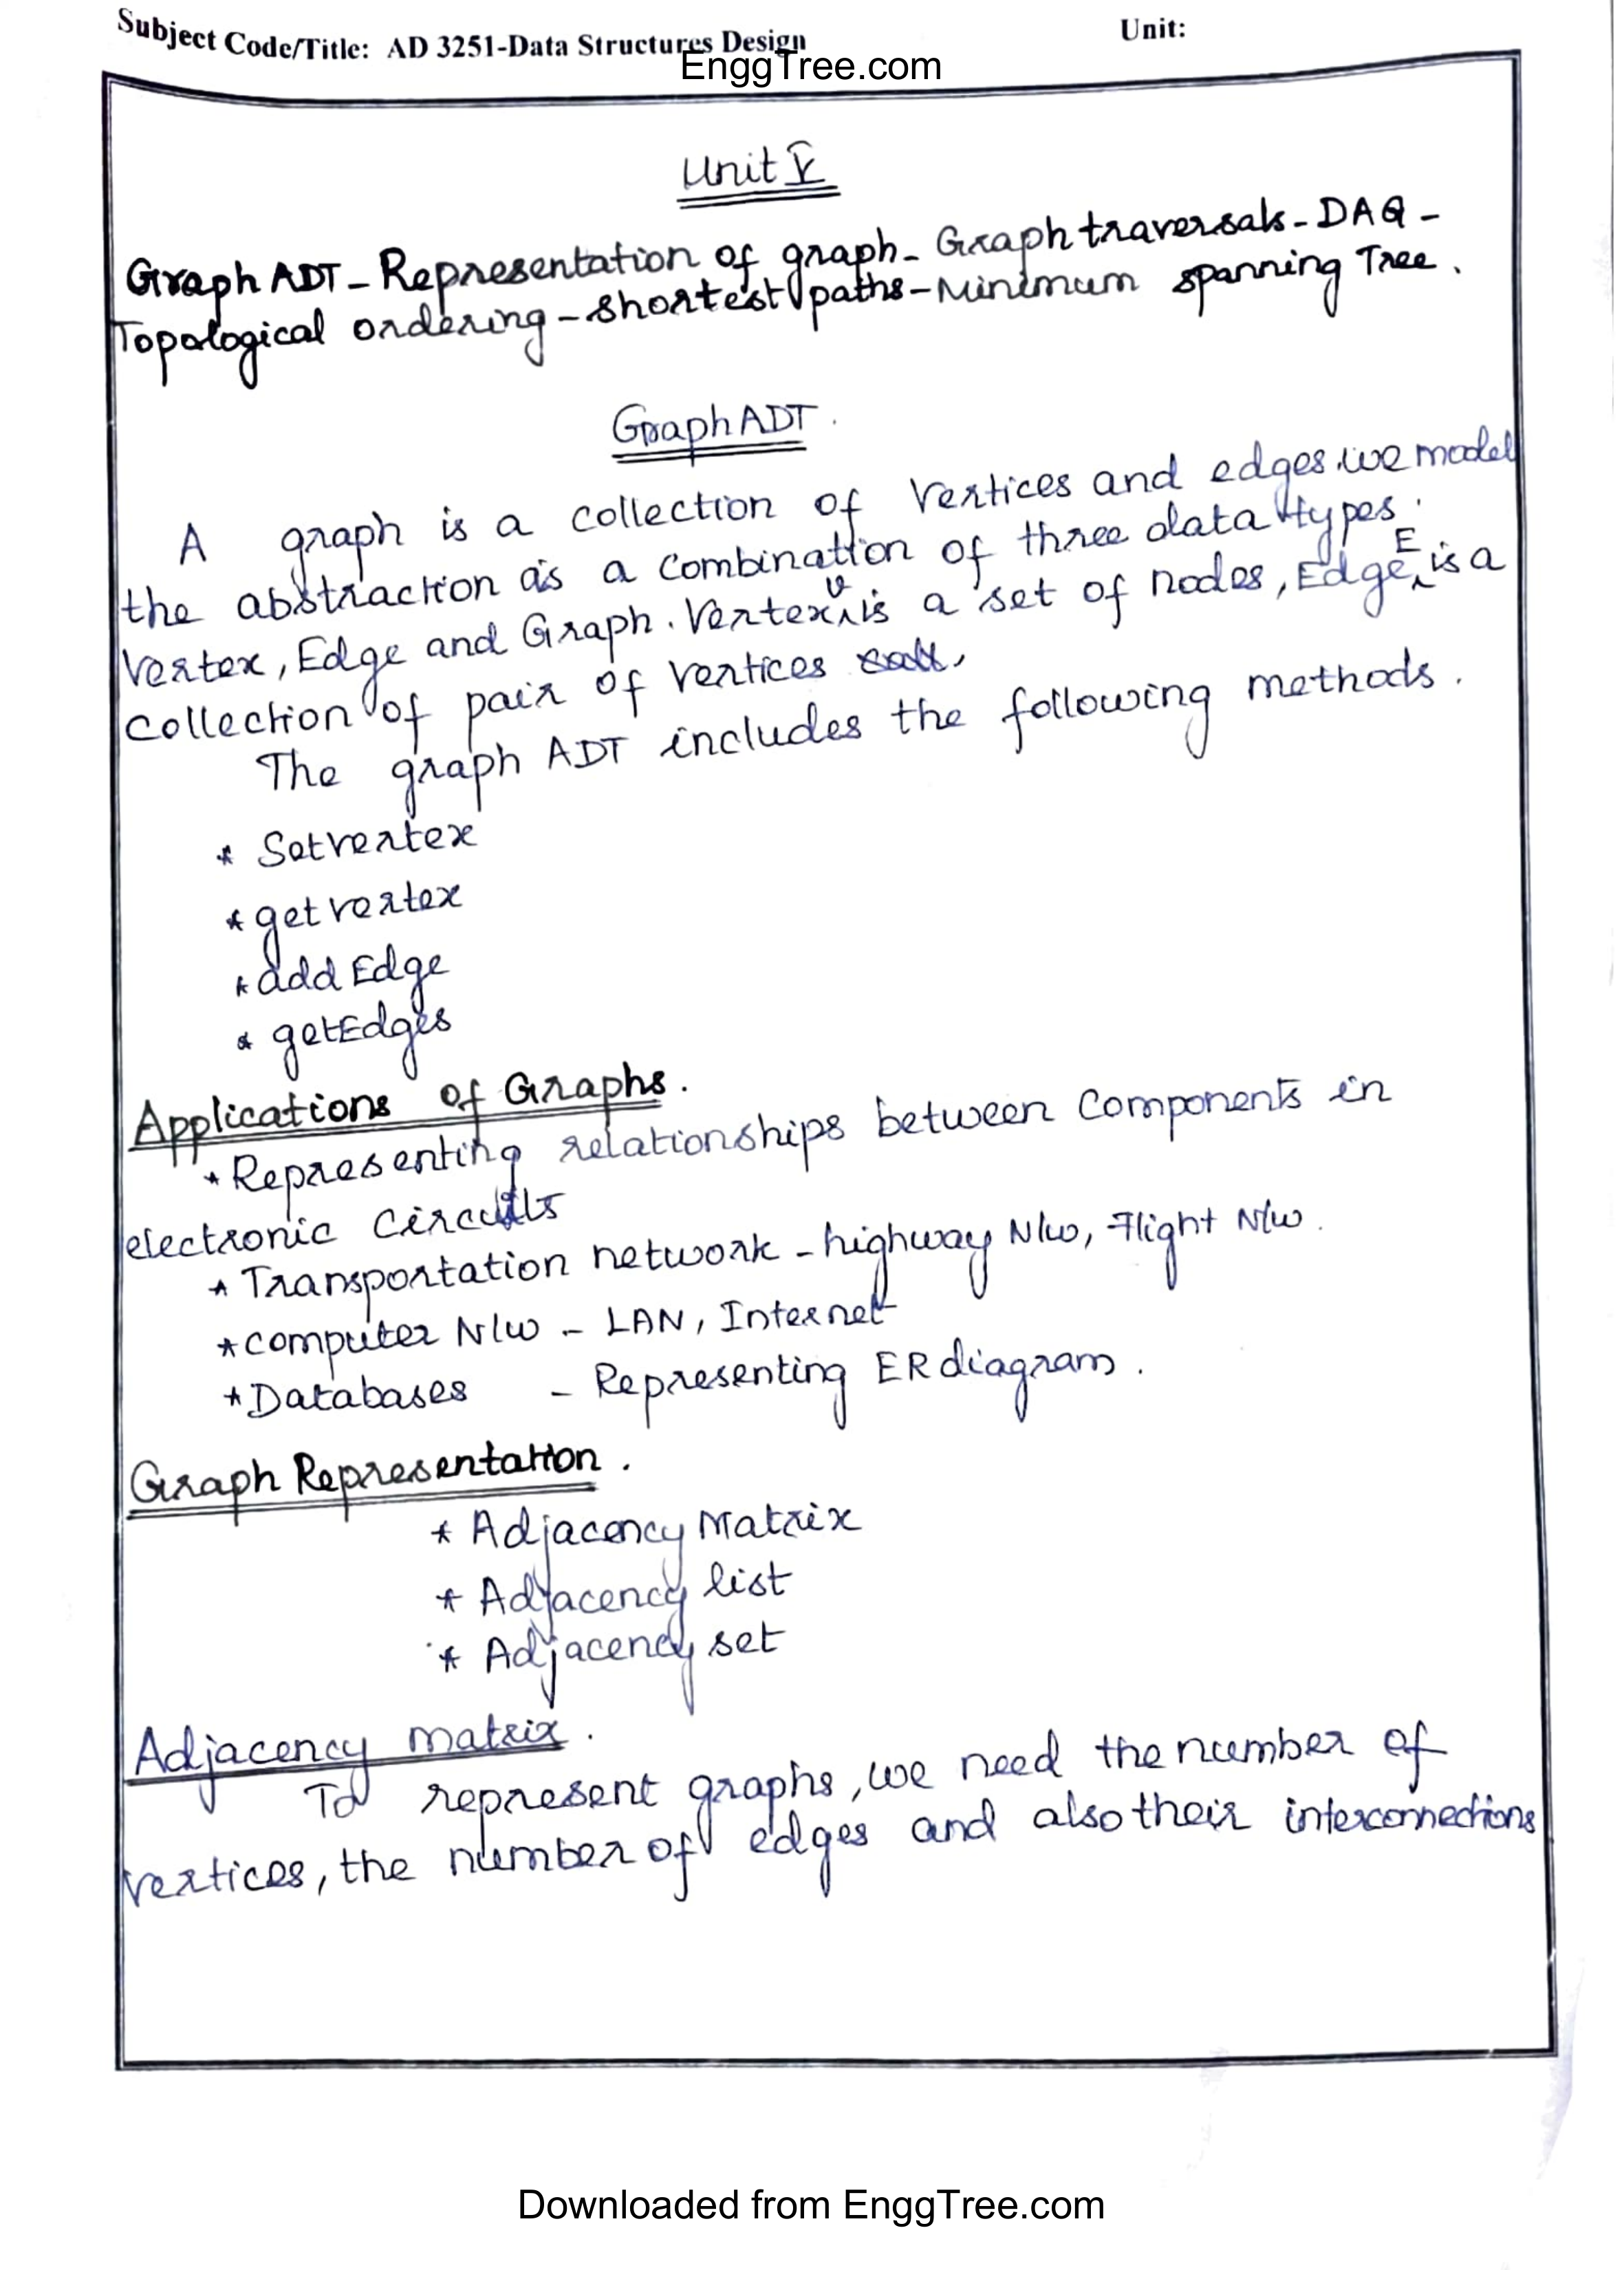 Subject Code/Title: AD 3251-Data Structures Design
Unit:
EnggTree.com
Unit V
Graph ADT - Representation of graph - Graph traversals - DAG -
Topological ordering - shortest paths - Minimum spanning Tree.
Graph ADT.
A graph is a collection of vertices and edges. we model
the abstraction as a combination of three data types.
Vertex, Edge and Graph. Vertex V is a set of nodes, Edge E is a
Collection of pair of vertices
The graph ADT includes the following methods.
* Setvertex
* getvertex
* add Edge
* getEdges
Applications of Graphs.
* Representing relationships between Components in
electronic Circuits
* Transportation network - highway N/w, Flight N/w.
* computer N/w - LAN, Internet
* Databases - Representing ER diagram.
Graph Representation.
* Adjacency Matrix
* Adjacency list
* Adjacency set
Adjacency matrix.
To represent graphs, we need the number of
vertices, the number of edges and also their interconnections
Downloaded from EnggTree.com